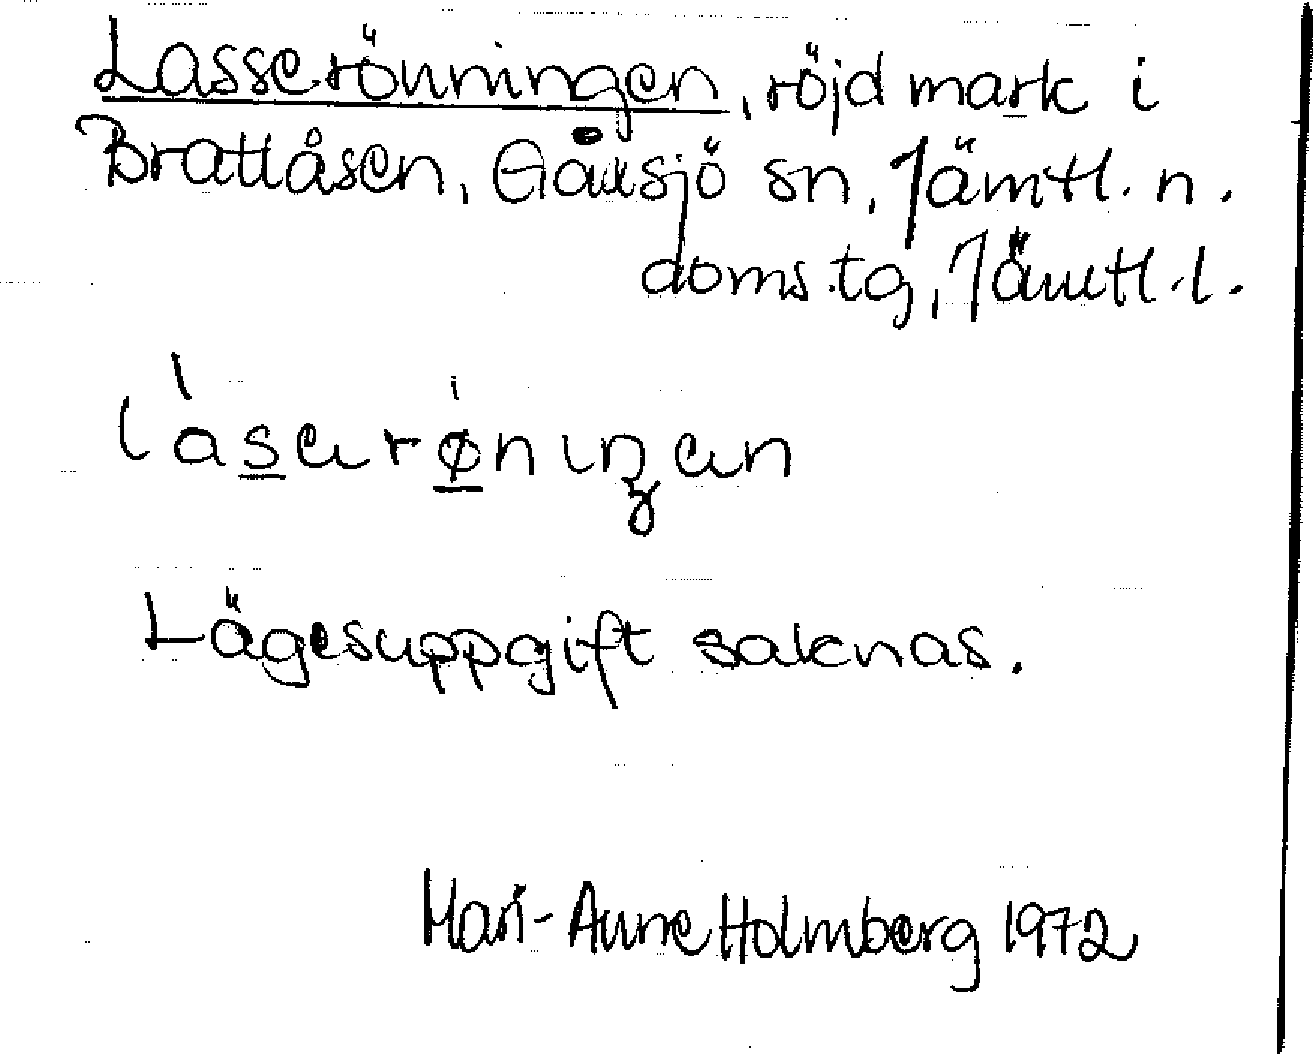 Lasserönningen, röjd mark i
Brattåsen, Gåxsjö sn, Jämtl. n.
doms.tg, Jämtl. l.
Lägesuppgift saknas.
Mari-Anne Holmberg 1972